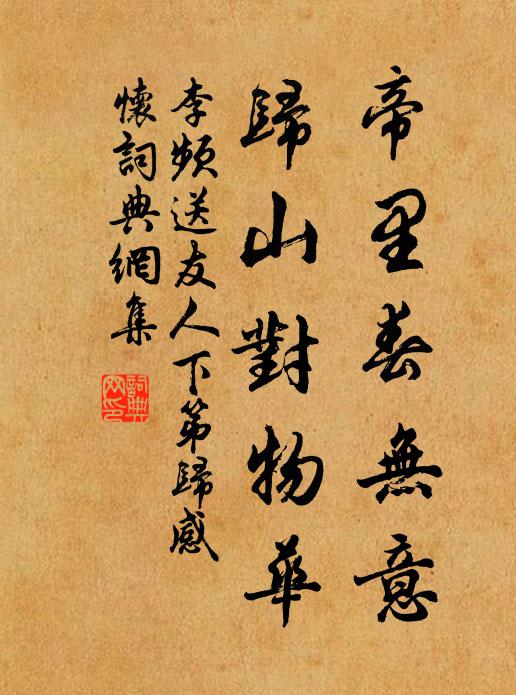 帝里春無意
歸山對物華
李頻送友人下第歸感
懷詞典網集
詞典
网印